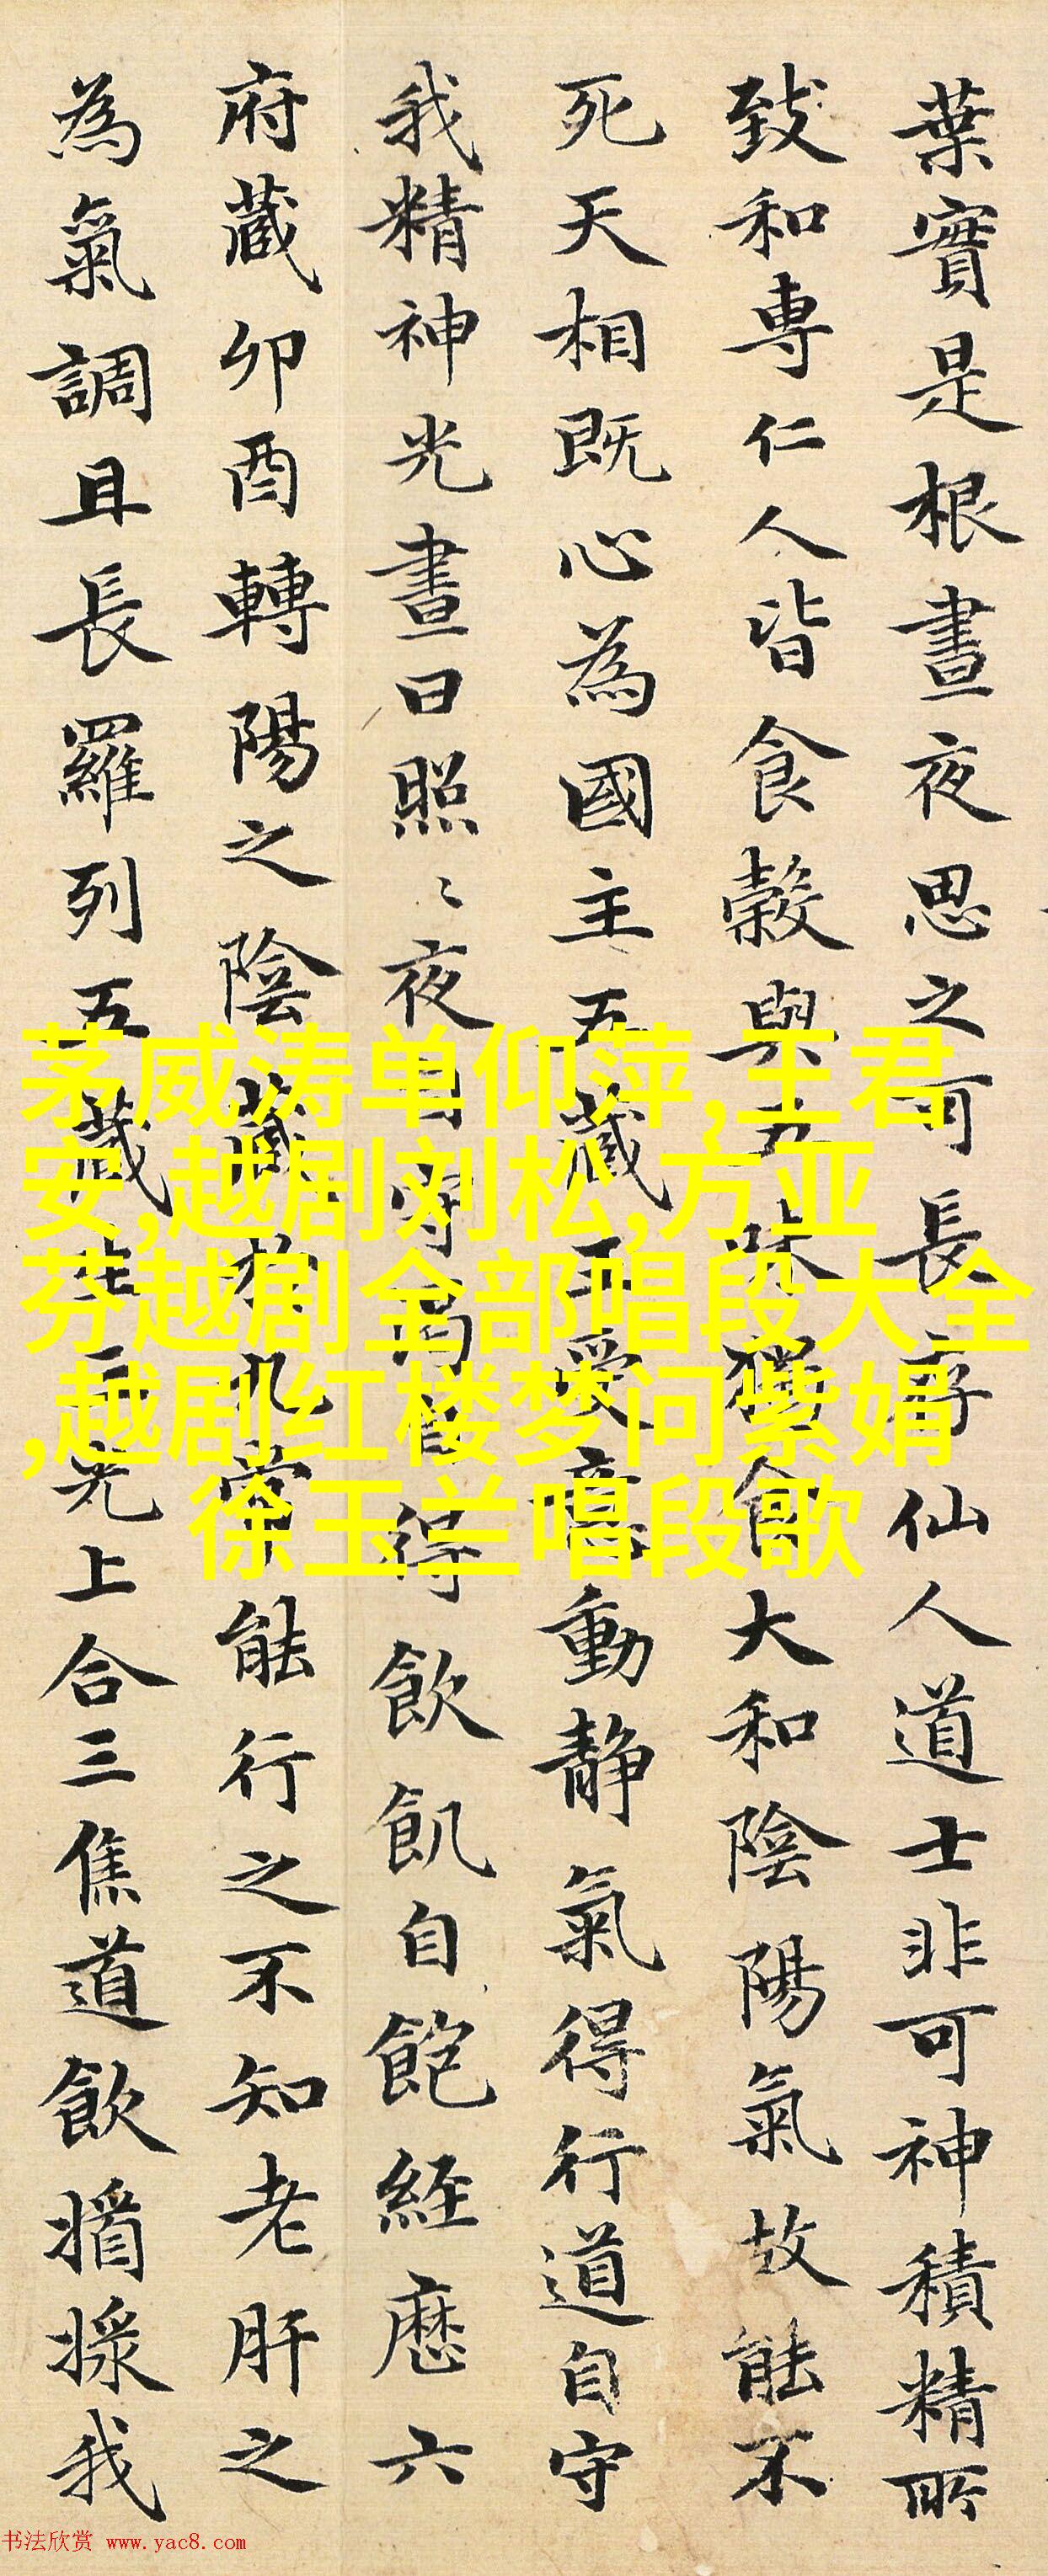 葉實是根晝夜思之可長存仙人道士非可神積精所
致和專仁人皆食穀與五味獨食大和陰陽氣故能不
死天相既心為國主五藏王受意動静氣得行道自守
我精神光晝日照〻夜自守渴自得飲飢自飽經歷六
府藏卯酉轉陽之陰藏於九常能行之不知老肝之
為氣調且長羅列五藏生三光上合三焦道飲我
茅威涛单仰萍,王君
安,越剧刘松,方亚
芬越剧全部唱段大全
,越剧红楼梦问紫娟
徐玉兰唱段歌
书法欣赏 www.yac8.com